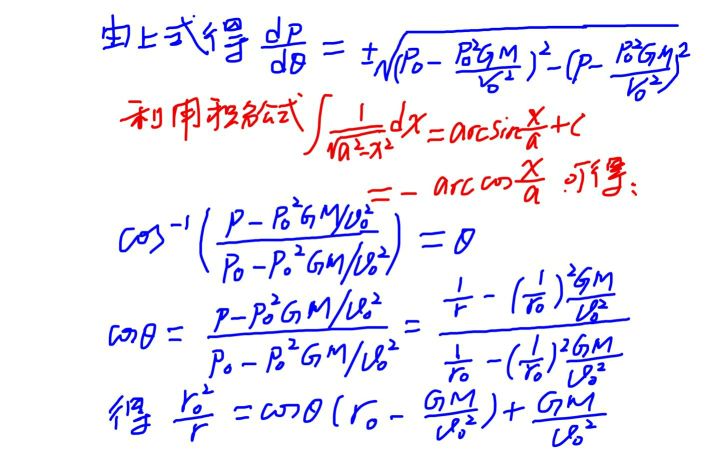 由上式得 dp/dθ = ±√((P₀ - P₀²GM/V₀²)² - (P - P₀²GM/V₀²)²)
利用积分公式 ∫ 1/√(a²-x²) dx = arcsin x/a + C
= - arccos x/a 可得:
cos⁻¹((P - P₀²GM/v₀²)/(P₀ - P₀²GM/v₀²)) = θ
cosθ = (P - P₀²GM/v₀²)/(P₀ - P₀²GM/v₀²) = (1/r - (1/r₀)² GM/v₀²)/(1/r₀ - (1/r₀)² GM/v₀²)
得 r₀²/r = cosθ(r₀ - GM/v₀²) + GM/v₀²